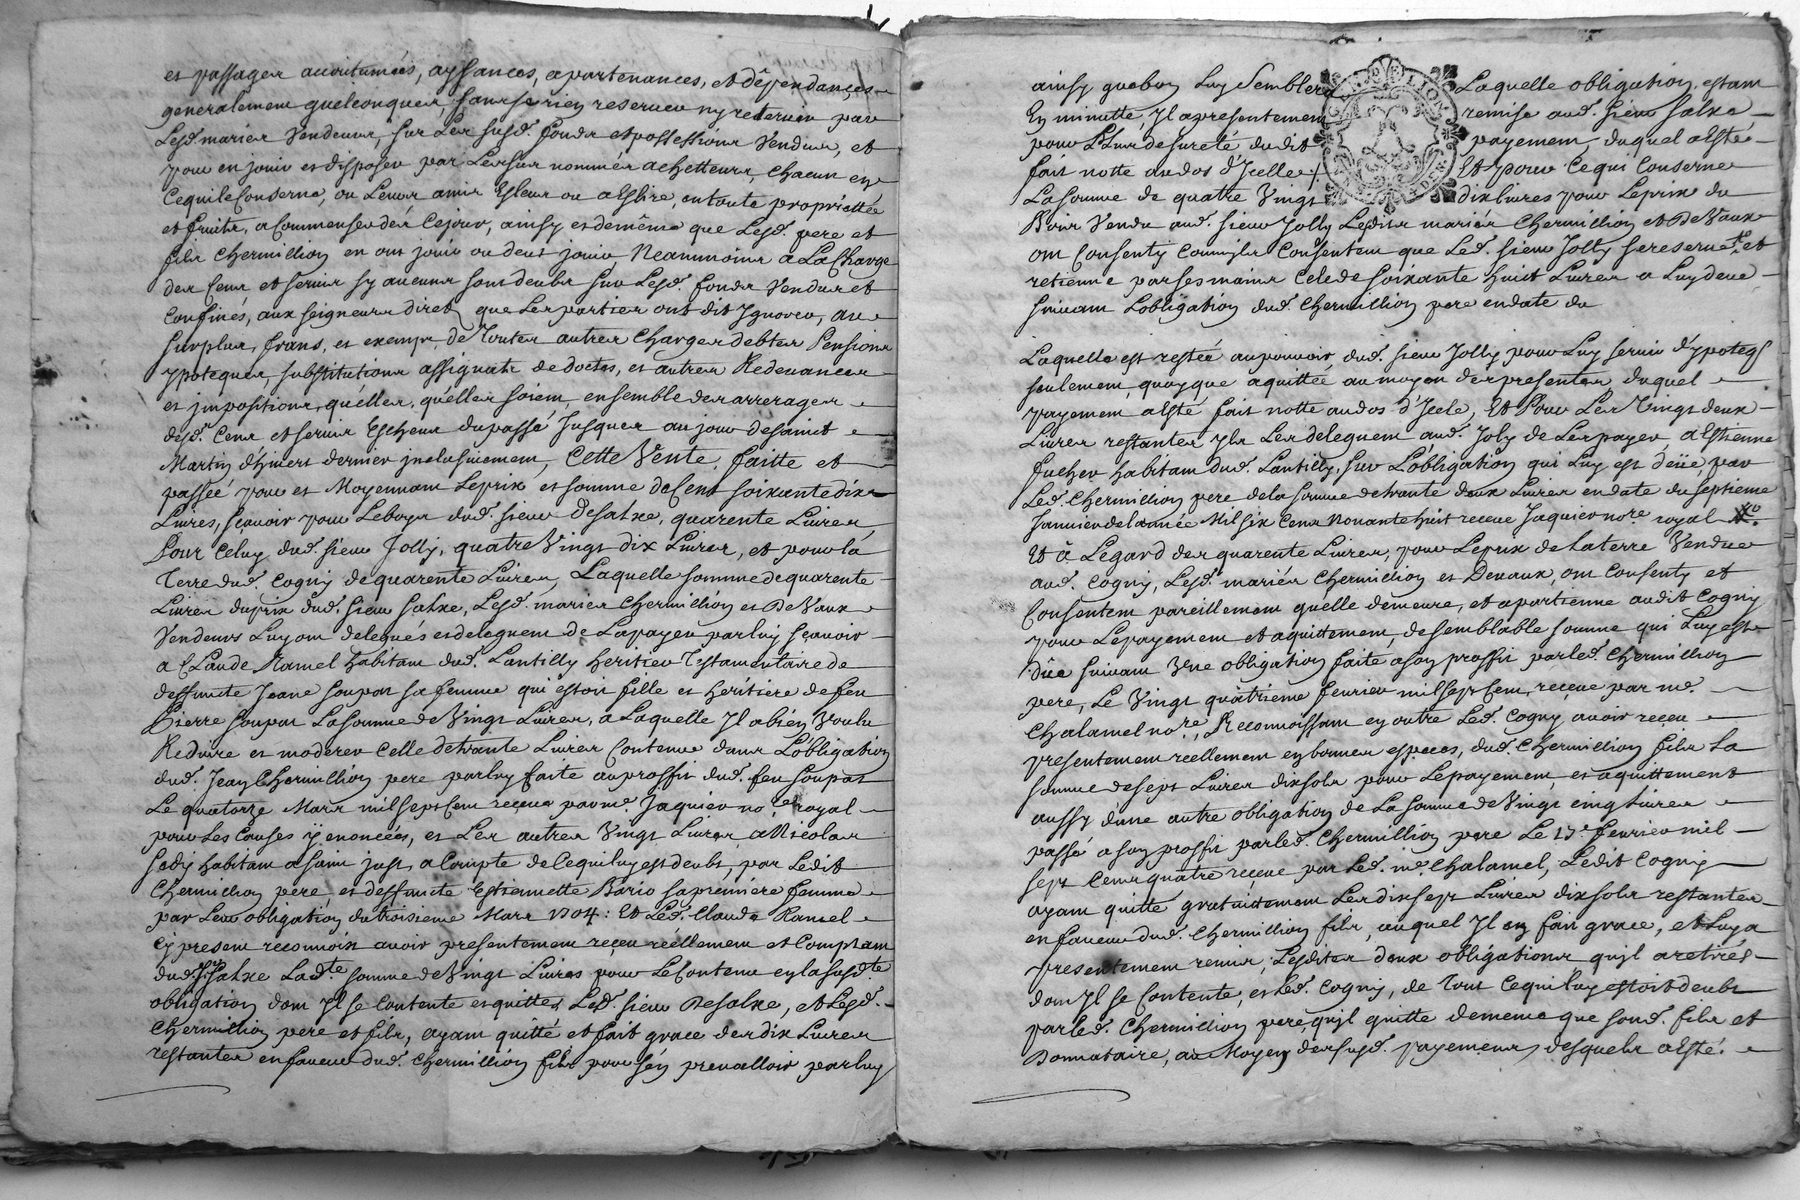 et passages accoutumées, aysances, apartenances, et dépendances
generalement quelconques, sans se rien reserver ny retenir par
Lesd. mariés Vendeurs, sur Les susd. fonds et possessions Vendus, et
pour en jouir et disposer par Les sus nommés achetteurs, Chacun en
Cequi Le Conserne, ou Leurs amis Esleus ou a Eslire, en toute proprietté
et fruits, a Commenser dés Cejour, ainsy et demême que Lesd. pere et
fils Chermillion en ont jouir ou deut jouir Neanmoins a La Charge
des Cens et servis sy aucuns sont deubs sur Lesd. fonds Vendus et
Confinés, aux seigneurs direts que Les parties ont dit Ignorer, au
surplus, francs, et exempt de Toutes autres Charges debtes Pensions
ypoteques, substitutions assignats de doctes, et autres Redevances
et jmpositions, quelles, quelles soient ensemble des arrerages
desd. Cens et servis Escheus du passé Jusques au jour de saint
Martin d'hivert dernier jnclusivement, Cette Vente, faitte et
passée pour et Moyennant Le prix et somme de Cent soixante dix
Livres, sçavoir pour Le boys dud. sieur Desalxe, quarente Livres,
Pour Celuy dud. sieur Jolly, quatre Vingt dix Livres, et pour la
Terre dud. Cogny de quarente Livres, Laquelle somme de quarente
Livres du prix dud. sieur salxe, Lesd. mariés Chermillion et De Vaux
Vendeurs Luy ont delegués et deleguent de La payer par luy sçavoir
a Claude Ramel habitant dud. Lantilly heritier Testamentaire de
deffuncte Jeane soupat sa femme qui estoit fille et heritiere de feu
Pierre soupat La somme de Vingt Livres, a Laquelle Il a bien Voulu
Reduire et moderer Celle de trante Livres Contenue dans L'obligation
dud. Jean Chermillion pere par luy faite au proffit dud. feu soupat
Le quatorze Mars mil sept Cent reçeue par me. Jaquier no.re royal
pour Les Causes y enoncées, et Les autres Vingt Livres a Nicolas
habitant a saint just, a Compte de Cequi luy est deubt, par Ledit
Chermillion pere, et deffuncte Estiennette Bario sa premiere femme
par Leur obligation du troisieme Mars 1704: Et Led. Claude Ramel
Cy present reconnoit avoir presentement reçeu réellement et Comptant
dud. sr. salxe Lad.te somme de Vingt Livres pour Le Contenu en la susd.te
obligation dont Il se Contente et quittes, Led. sieur Desalxe, et Lesd.
Chermillion pere et fils, ayant quitté et fait grace des dix Livres
restantes en faveur dud. Chermillion fils pour s'én prevalloir par luy
ainsy que bon Luy Semblera Laquelle obligation, estant
En minutte, Il a presentement remise aud. sieur salxe
pour L'Lus de sureté dudit payement, duquel a Esté
fait notte au dos d'Icelle; Et pour Cequi Conserne
La somme de quatre Vingt dix Livres pour Le prix du
Bois Vendu aud. sieur Jolly Lesdits mariés Chermillion et De Vaux
ont Consenty Comm'ils Consentent que Led. sieur Jolly se reserve, et
retienne par ses mains Cele de soixante huit Livres a Luy deue
suivant L'obligation dud. Chermillion pere en date du
Laquelle est restée au pouvoir, dud. sieur Jolly pour Luy servir d'ypoteq
seulement, quoyque aquittée au moyen des presentes duquel
payement a Esté fait notte au dos d'Icele, Et Pour Les Vingt deux
Livres restantes Ils Les deleguent aud. Joly de Les payer a Estienne
fucher habitant dud. Lantilly, sur L'obligation qui Luy est deüe, par
Led. Chermillion pere de la somme de trante deux Livres en date du septieme
Janvier de L'année Mil six Cens Nonante huit reçeue Jaquier no.re royal
Et â L'egard des quarente Livres, pour Le prix de La terre Vendue
aud. Cogny, Lesd. mariés Chermillion et Devaux, ont Consenty et
Consentent pareillement quelle demeure, et apartienne audit Cogny
pour Le payement et aquittement, de semblable somme qui Luy est
düe suivant Une obligation faite a son proffit par led. Chermillion
pere, Le Vingt quatrieme fevrier mil sept Cent, reçeue par me.
Chalamel no.re, Reconnoissant en outre Led. Cogny, avoir reçeu
presentement reellement en bonnes especes, dud. Chermillion fils La
somme de sept Livres dix sols pour Le payement, et aquittement
aussy d'une autre obligation de La somme de Vingt cinq Livres
passé a son proffit par led. Chermillion pere Le 17e fevrier mil
sept Cens quatre reçeue par Led. me. Chalamel, Ledit Cogny
ayant quitté gratuittement Les dix sept Livres dix sols restantes
en faveur dud. Chermillion fils, auquel Il en fait grace, et Luy a
presentement remis, Lesdites deux obligations qu'jl a retirés
dont Il se Contente, et Led. Cogny, de Tout Cequi luy estoit deubt
par led. Chermillion pere qu'jl quitte demême que sond. fils et
Donnataire, au Moyen des susd. payements, desquels a Esté